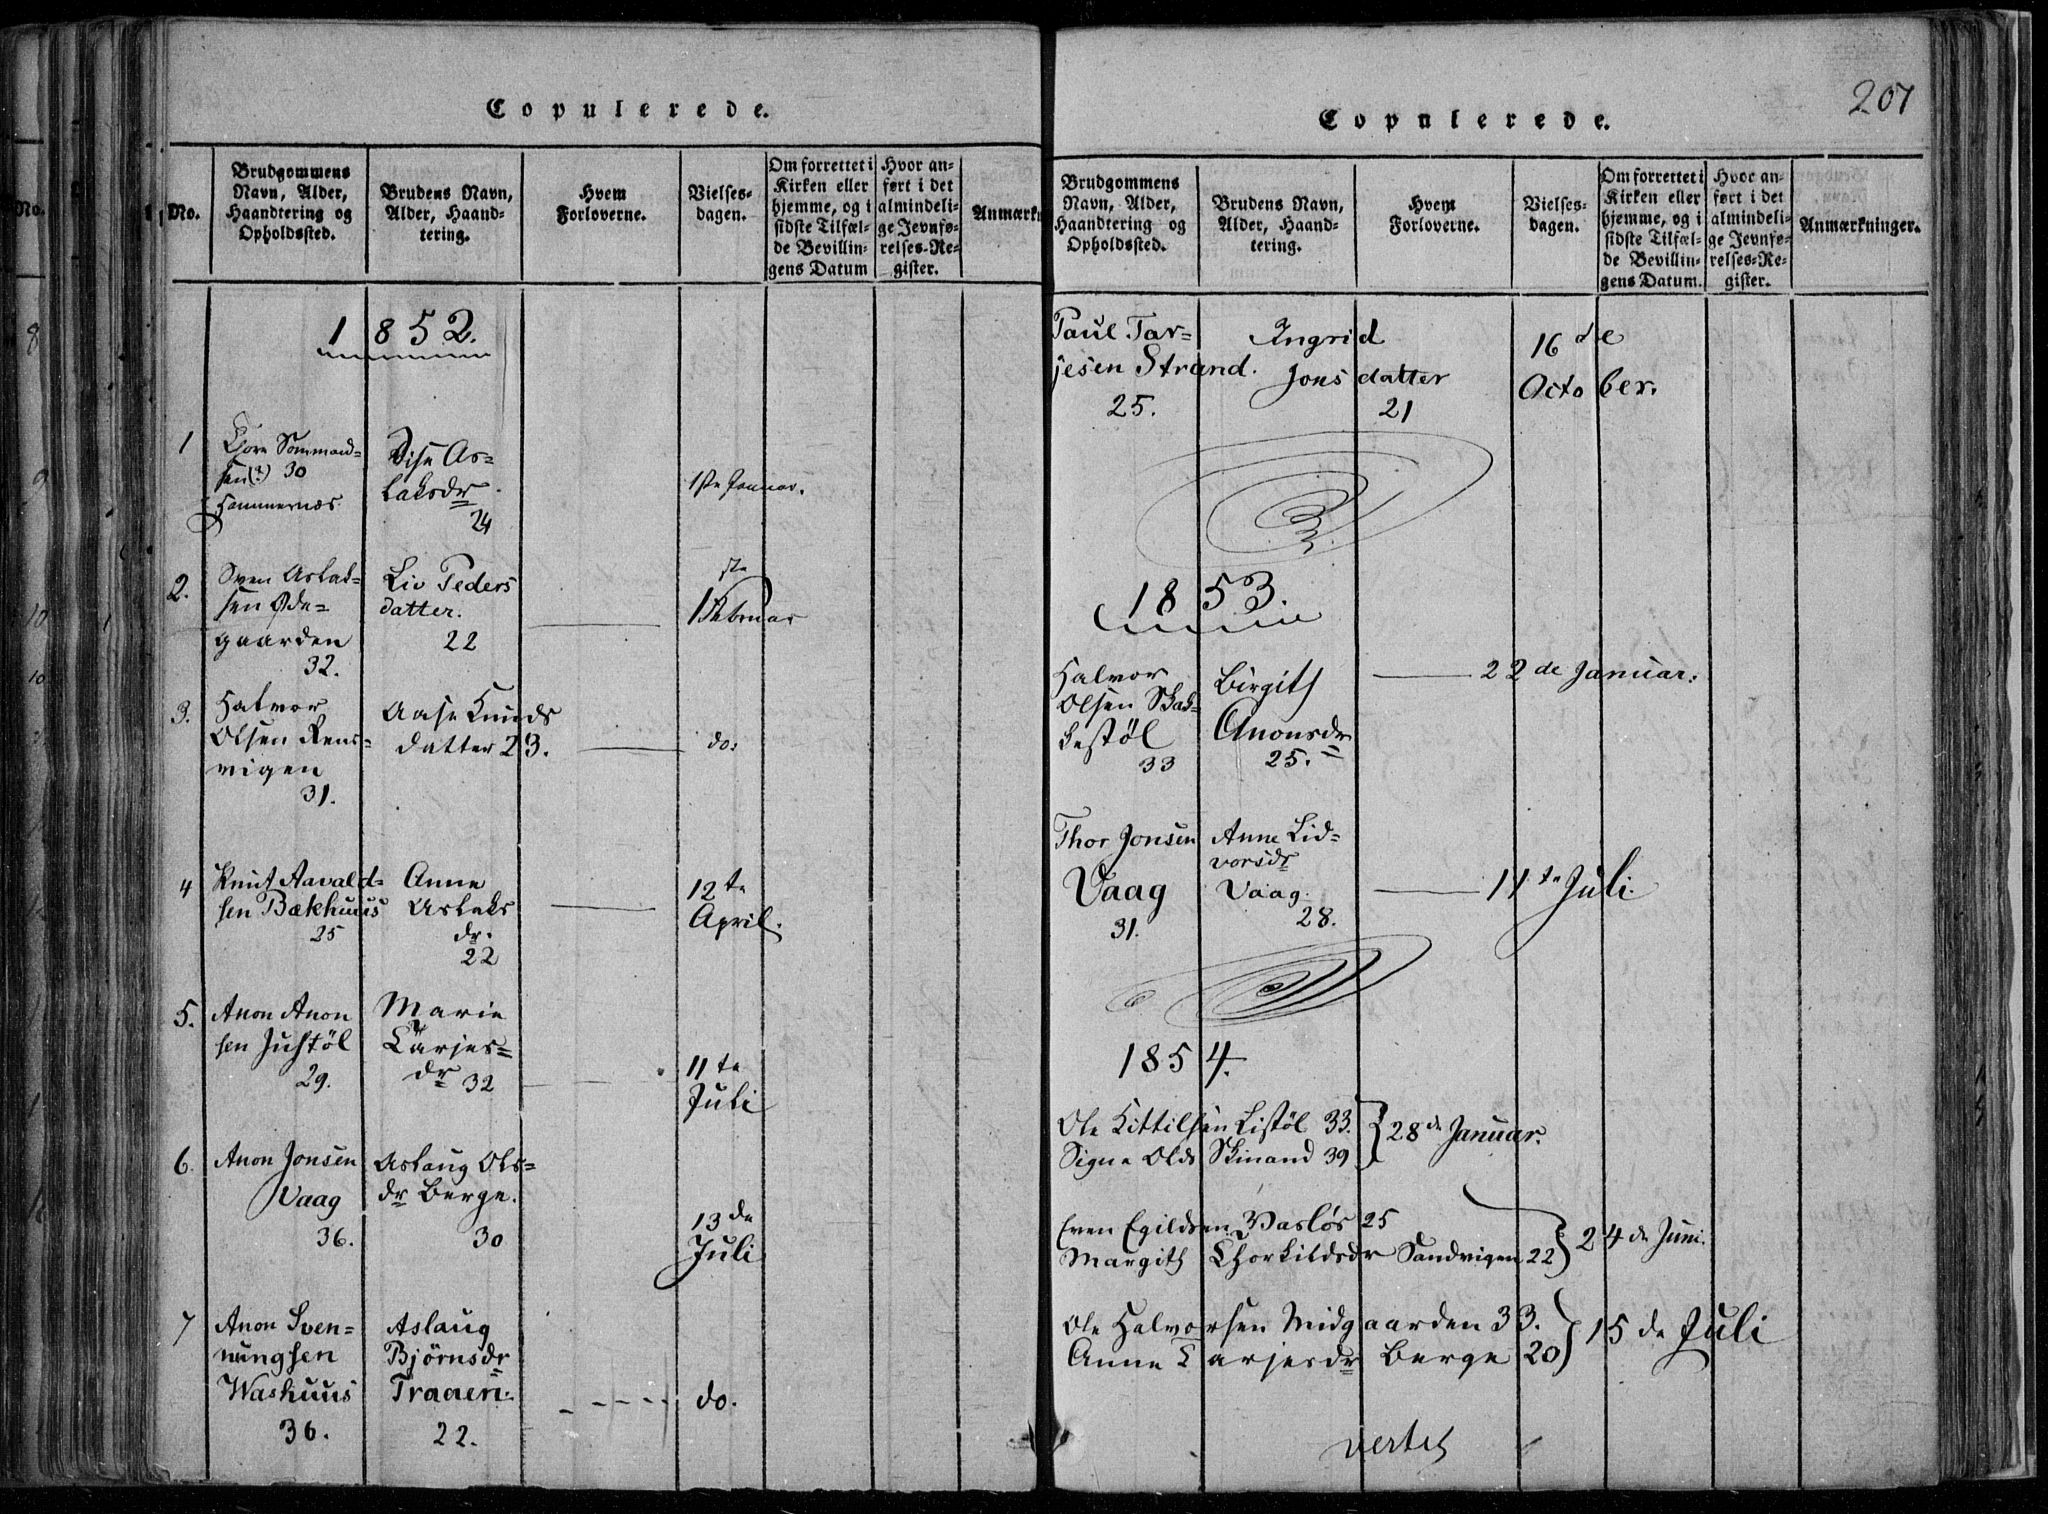 Copulerede.
No.
Brudgommens Navn, Alder, Haandtering og Opholdssted.
Brudens Navn, Alder, Haandtering.
Hvem Forloverne.
Vielses-dagen.
Om forrettet i Kirken eller hjemme, og i sidste Tilfælde Bevillingens Datum
Hvor anført i det almindelige Jevnførelses-Register.
Anmærkn
1852.
1
Sommond=
sen (?) 30
Hammernæs
As=
laksdr
24
1ste Januar.
2.
Sven Aslak=
sen Øde=
gaarden
32.
Liv Peders
datter.
22
1ste Februar
3.
Halvor
Olsen Rens=
vigen
31.
Aase Knuds
datter 23.
do.
4
Knut Aavald=
sen Bækhuus
25
Anne
Aslaks
dr.
22
12te
April.
5.
Anon Anon
sen Justöl
29.
Marie
Tarjes=
dr 32
11te
Juli
6.
Anon Jonsen
Vaag
36.
Aslaug Ols=
dr Berge.
30
13de
Juli
7
Anon Sven=
nungsen
Washuus
36.
Aslaug
Björnsdr
Traaen.
22.
do.
207
Copulerede.
Brudgommens Navn, Alder, Haandtering og Opholdssted.
Brudens Navn, Alder, Haandtering.
Hvem Forloverne.
Vielses-dagen.
Om forrettet i Kirken eller hjemme, og i sidste Tilfælde Bevillingens Datum.
Hvor anført i det almindelige Jevnførelses-Register.
Anmærkninger.
Paul Tar=
jesen Strand.
25.
Ingrid
Jonsdatter
21
16de
October.
1853.
Halvor
Olsen Skak=
kestöl
33
Birgith
Anonsdr
25.
22de Januar.
Thor Jonsen
Vaag
31.
Anne Lid=
vorsdr
Vaag.
28.
11te Juli.
1854.
Ole Kittilsen Listöl 33.
Signe Olds Skinand 39
28de Januar.
Even Egildsen Vasløs 25
Margith Thorkildsdr Sandvigen 22
24de Juni.
Ole Halvorsen Midgaarden 33.
Anne Tarjesdr Berge 20
15de Juli
vertes